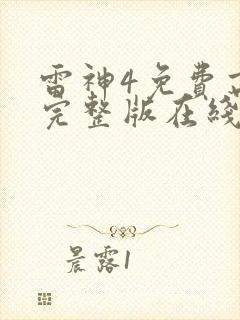 雷神4免費
完整版在綫
晨露1